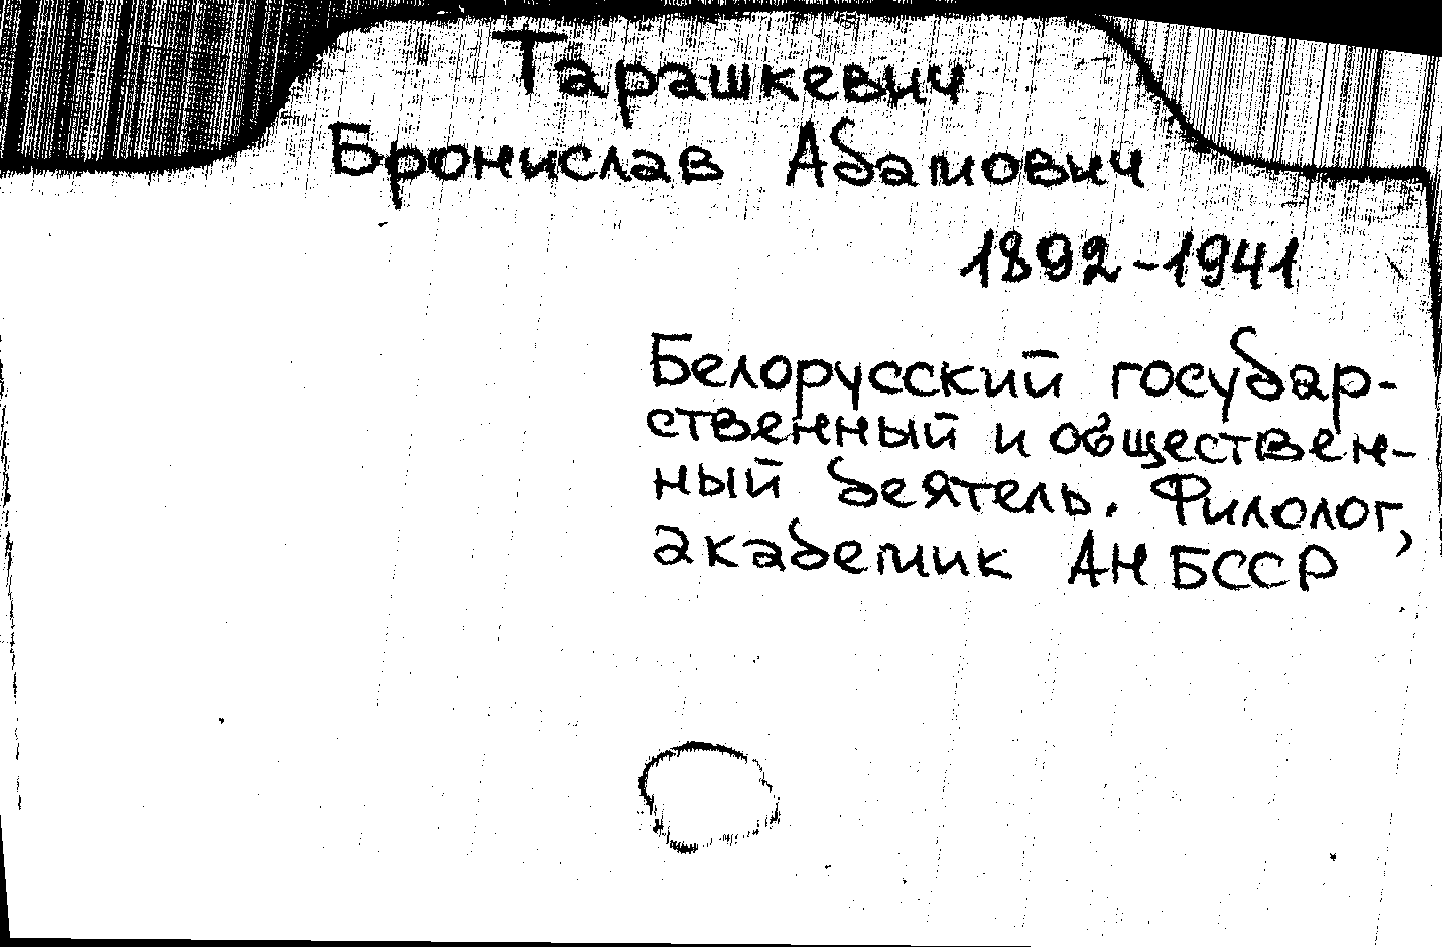 Тарашкевич
Бронислав Адамович
1892-1941
Белорусский государ-
ственный и обществен-
ный деятель. Филолог,
академик АН БССР